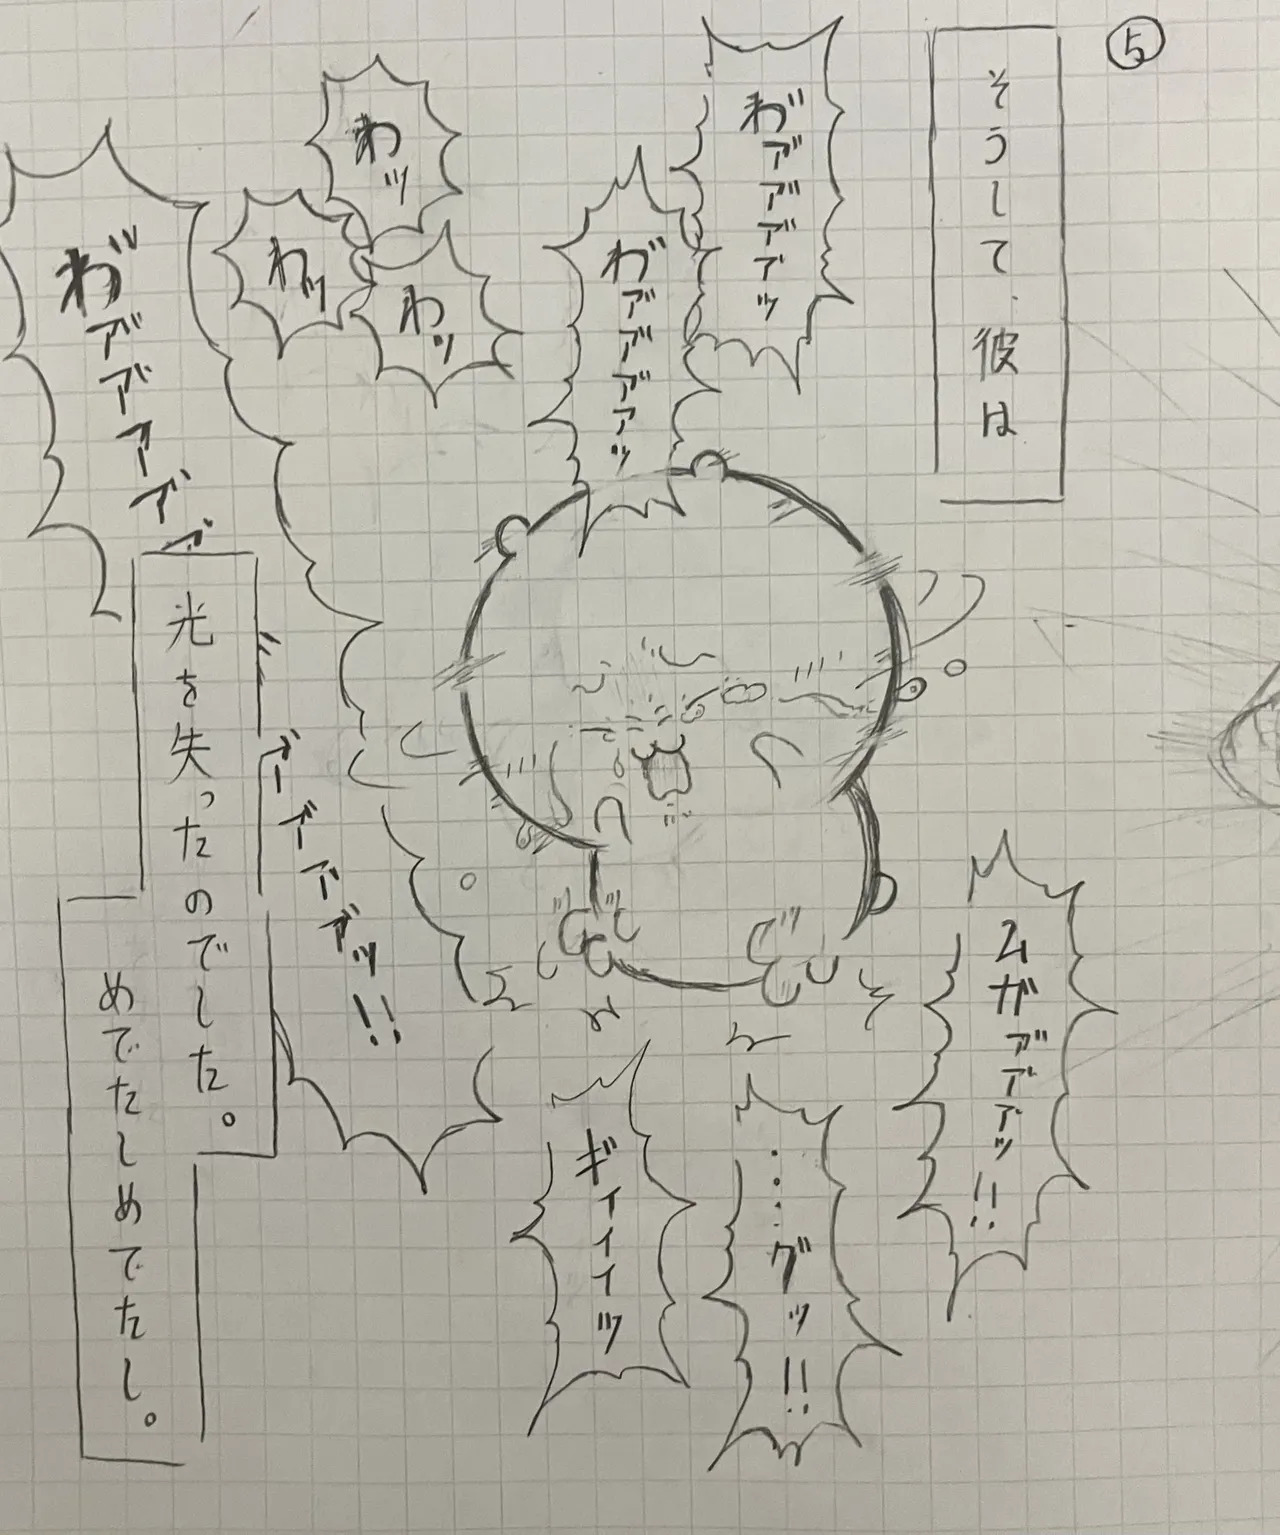 ⑤
そうして彼は
わ゛ア゛ア゛ア゛ア゛ッ
わ゛ア゛ア゛ア゛アッ
わッ
わッ
わッ
わ゛ア゛ア゛アア゛ア゛ア゛ア゛ア゛ア゛ッ!!
ムガア゛ア゛アッ!!
・・・グッ!!
ギイイイッ
光を失ったのでした。
めでたしめでたし。